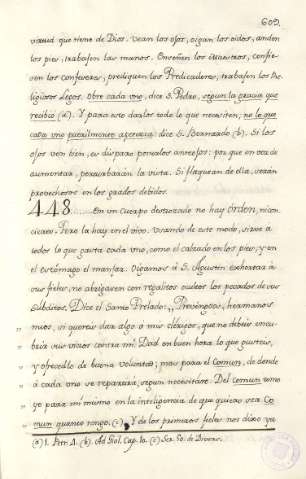 609.
virtud que tiene de Dios. Vean los ojos, oigan los oidos, anden
los pies, trabajen las manos. Enseñen los Maestros, confie-
sen los confesores, prediquen los Predicadores, trabajen los Re-
ligiosos Legos. Obre cada uno, dice S. Pedro, segun la gracia que
recibió (a). Y para esto darles todo lo que necesiten, no lo que
cada uno dice S. Bernardo (b). Si los
ojos ven bien, es disparo ponerlos anteojos: por que en vez de
aumentar, perturbarán la vista. Si flaquean de ella, serán
provechosos en los grados debidos.
448. En un Cuerpo destrozado no hay orden, ni con-
cierto. Pero la hay en el vivo. Usando de este modo, sirve a
todos lo que gasta cada uno, como el calzado en los pies, y en
el estómago el manjar. Oigamos á S. Agustin exhortar á
sus fieles, no abrigasen con regalitos sueltos los pecados de sus
subditos. Dice el Santo Prelado: Prosigo, hermanos
mios, si quereis dar algo a mis clérigos, que no debais encu-
brir sus vicios contra mí. Dad en buen hora lo que gusteis,
y ofrecedlo de buena voluntad; mas para el comun, de donde
á cada uno se repartirá, segun necesitare. Del comun tomo
yo para mí mismo en la inteligencia de que quiero sea Co-
mun quanto tengo. (c). Y de los primeros fieles nos dixo ya
(a) 1. Petr. 4. (b). Ad Sol. Cap. 1a. (c) Ser. 50. de Divers.